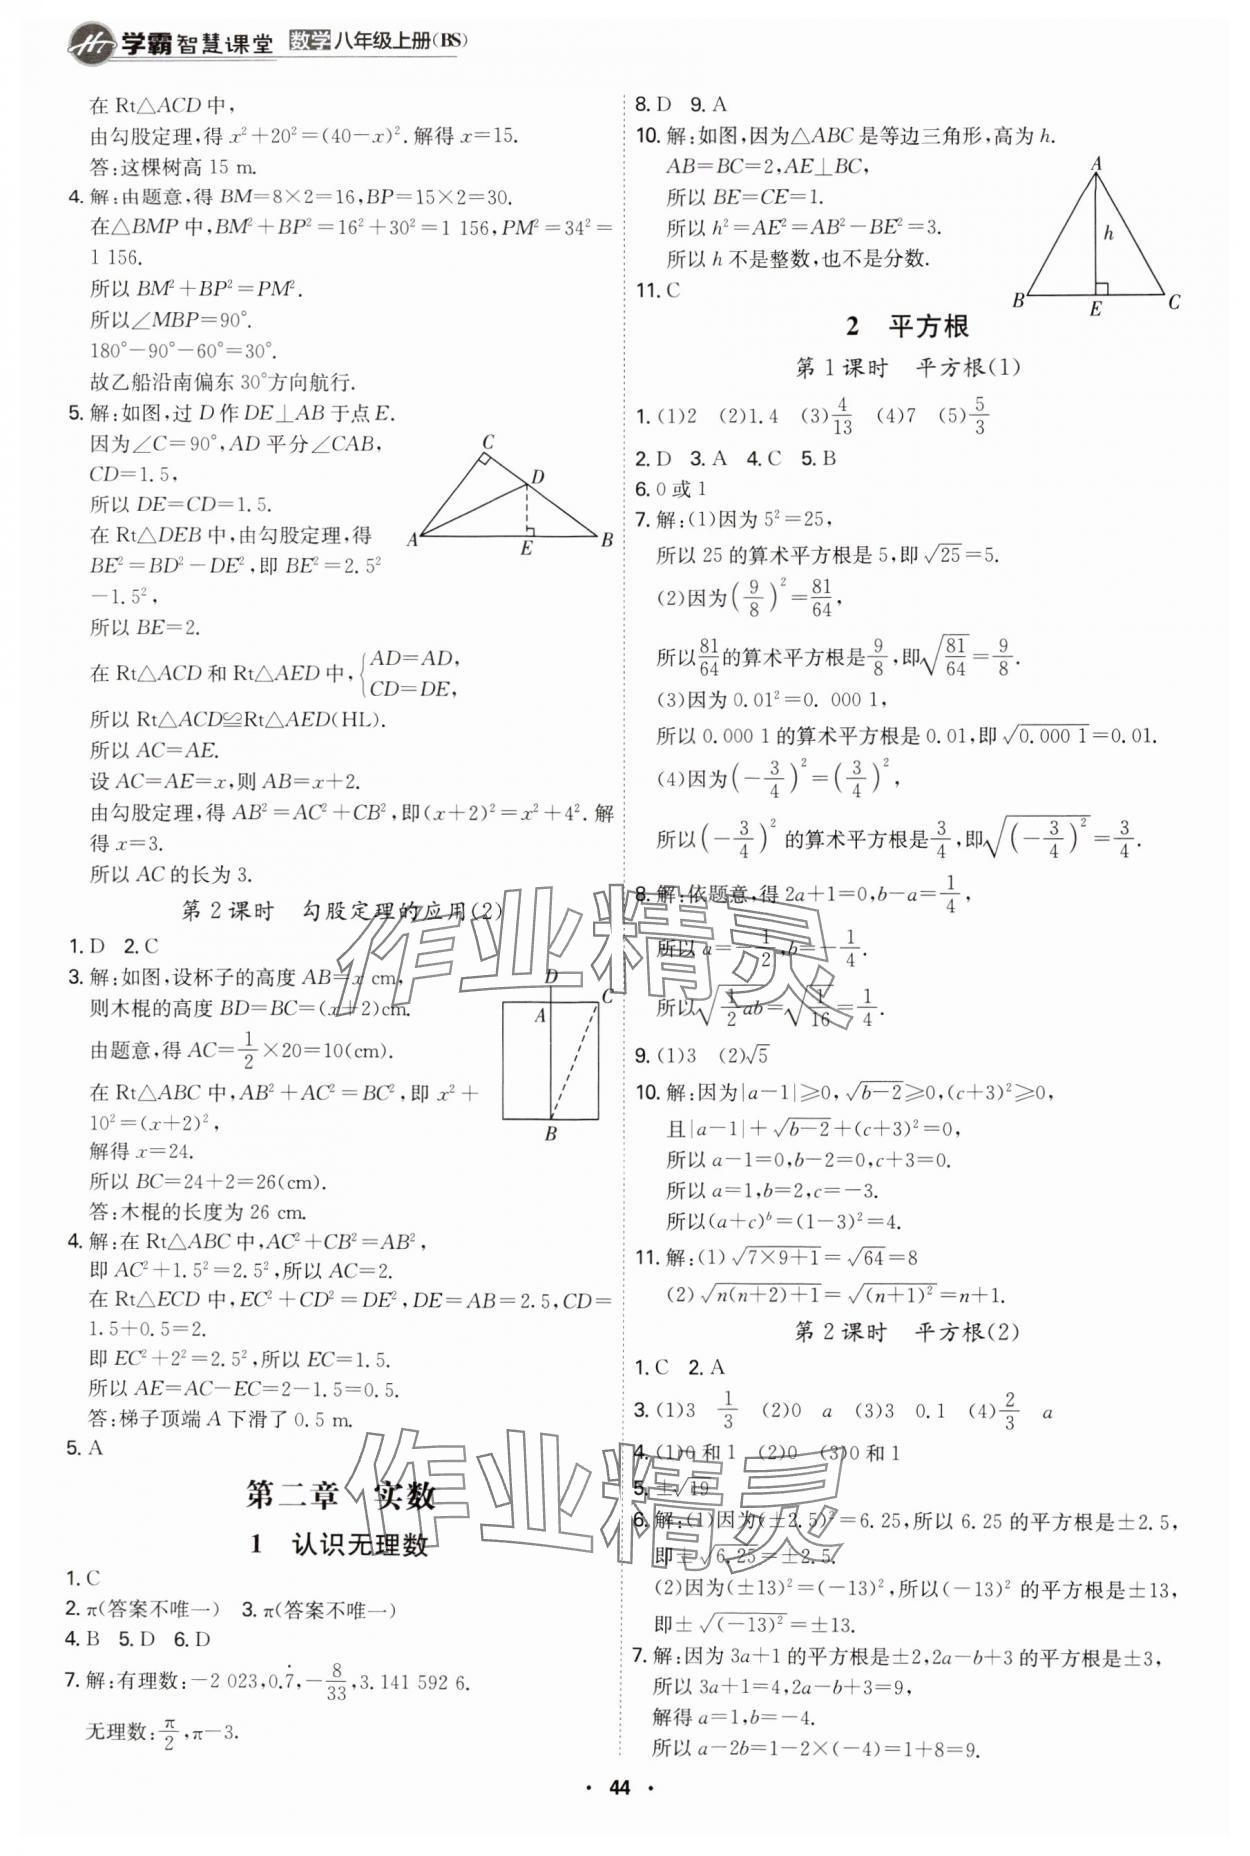 学霸智慧课堂 数学八年级上册(BS)
在 Rt△ACD 中,
由勾股定理,得 x²+20²=(40-x)². 解得 x=15.
答:这棵树高 15 m.
4. 解:由题意,得 BM=8×2=16,BP=15×2=30.
在△BMP 中,BM²+BP²=16²+30²=1 156,PM²=34²=
1 156.
所以 BM²+BP²=PM².
所以∠MBP=90°.
180°-90°-60°=30°.
故乙船沿南偏东 30°方向航行.
5. 解:如图,过 D 作 DE⊥AB 于点 E.
因为∠C=90°,AD 平分∠CAB,
CD=1.5,
所以 DE=CD=1.5.
在 Rt△DEB 中,由勾股定理,得
BE²=BD²-DE²,即 BE²=2.5²
-1.5²,
所以 BE=2.
C
D
A
E
B
在 Rt△ACD 和 Rt△AED 中,{AD=AD,
CD=DE,
所以 Rt△ACD≌Rt△AED(HL).
所以 AC=AE.
设 AC=AE=x,则 AB=x+2.
由勾股定理,得 AB²=AC²+CB²,即(x+2)²=x²+4². 解
得 x=3.
所以 AC 的长为 3.
第 2 课时 勾股定理的应用(2)
1. D 2. C
3. 解:如图,设杯子的高度 AB=x cm,
则木棍的高度 BD=BC=(x+2)cm.
由题意,得 AC=1/2×20=10(cm).
在 Rt△ABC 中,AB²+AC²=BC²,即 x²+
10²=(x+2)²,
解得 x=24.
所以 BC=24+2=26(cm).
答:木棍的长度为 26 cm.
D
C
A
B
4. 解:在 Rt△ABC 中,AC²+CB²=AB²,
即 AC²+1.5²=2.5²,所以 AC=2.
在 Rt△ECD 中,EC²+CD²=DE²,DE=AB=2.5,CD=
1.5+0.5=2.
即 EC²+2²=2.5²,所以 EC=1.5.
所以 AE=AC-EC=2-1.5=0.5.
答:梯子顶端 A 下滑了 0.5 m.
5. A
第二章 实数
1 认识无理数
1. C
2. π(答案不唯一) 3. π(答案不唯一)
4. B 5. D 6. D
7. 解:有理数:-2 023,0.7̇,-8/33,3.141 592 6.
无理数:π/2,π-3.
8. D 9. A
10. 解:如图,因为△ABC 是等边三角形,高为 h.
AB=BC=2,AE⊥BC,
所以 BE=CE=1.
所以 h²=AE²=AB²-BE²=3.
所以 h 不是整数,也不是分数.
A
h
B
E
C
11. C
2 平方根
第 1 课时 平方根(1)
1. (1)2 (2)1.4 (3)4/13 (4)7 (5)5/3
2. D 3. A 4. C 5. B
6. 0 或 1
7. 解:(1)因为 5²=25,
所以 25 的算术平方根是 5,即 √25=5.
(2)因为(9/8)²=81/64,
所以81/64的算术平方根是9/8,即√(81/64)=9/8.
(3)因为 0.01²=0.000 1,
所以 0.000 1 的算术平方根是 0.01,即√0.000 1=0.01.
(4)因为(-3/4)²=(3/4)²,
所以(-3/4)²的算术平方根是3/4,即√((-3/4)²)=3/4.
8. 解:依题意,得 2a+1=0,b-a=1/4,
所以 a=-1/2,b=-1/4.
所以√(1/2 ab)=√(1/16)=1/4.
9. (1)3 (2)√5
10. 解:因为|a-1|≥0,√(b-2)≥0,(c+3)²≥0,
且|a-1|+√(b-2)+(c+3)²=0,
所以 a-1=0,b-2=0,c+3=0.
所以 a=1,b=2,c=-3.
所以(a+c)ᵇ=(1-3)²=4.
11. 解:(1) √(7×9+1)=√64=8
(2) √(n(n+2)+1)=√((n+1)²)=n+1.
第 2 课时 平方根(2)
1. C 2. A
3. (1)3 1/3 (2)0 a (3)3 0.1 (4)2/3 a
4. (1)0 和 1 (2)0 (3)0 和 1
5. ±√19
6. 解:(1)因为(±2.5)²=6.25,所以 6.25 的平方根是±2.5,
即±√6.25=±2.5.
(2)因为(±13)²=(-13)²,所以(-13)²的平方根是±13,
即±√((-13)²)=±13.
7. 解:因为 3a+1 的平方根是±2,2a-b+3 的平方根是±3,
所以 3a+1=4,2a-b+3=9,
解得 a=1,b=-4.
所以 a-2b=1-2×(-4)=1+8=9.
作业精灵
作业精灵
· 44 ·